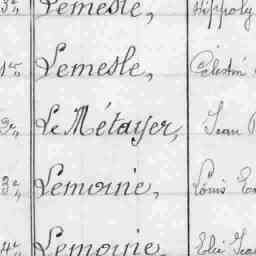 3e, Lemesle, Hippoly
Lemesle, Célestin
Le Métayer, Jean
3e, Lemoine, Louis
4e, Lemoine, Elie Jea